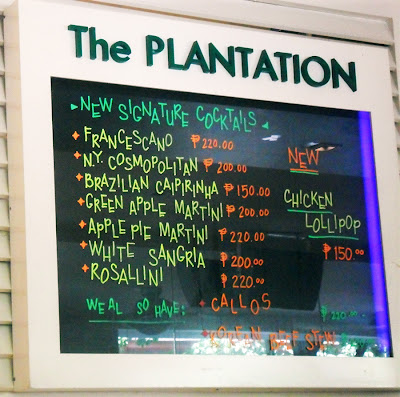 The PLANTATION
NEW SIGNATURE COCKTAILS
FRANCESCANO ₱220.00
N.Y. COSMOPOLITAN ₱200.00
BRAZILIAN CAIPIRINHA ₱150.00
GREEN APPLE MARTINI ₱200.00
APPLE PIE MARTINI ₱220.00
WHITE SANGRIA ₱200.00
ROSALLINI ₱220.00
NEW
CHICKEN
LOLLIPOP
₱150.00
WE AL SO HAVE: CALLOS ₱220.00
BEEF STEW